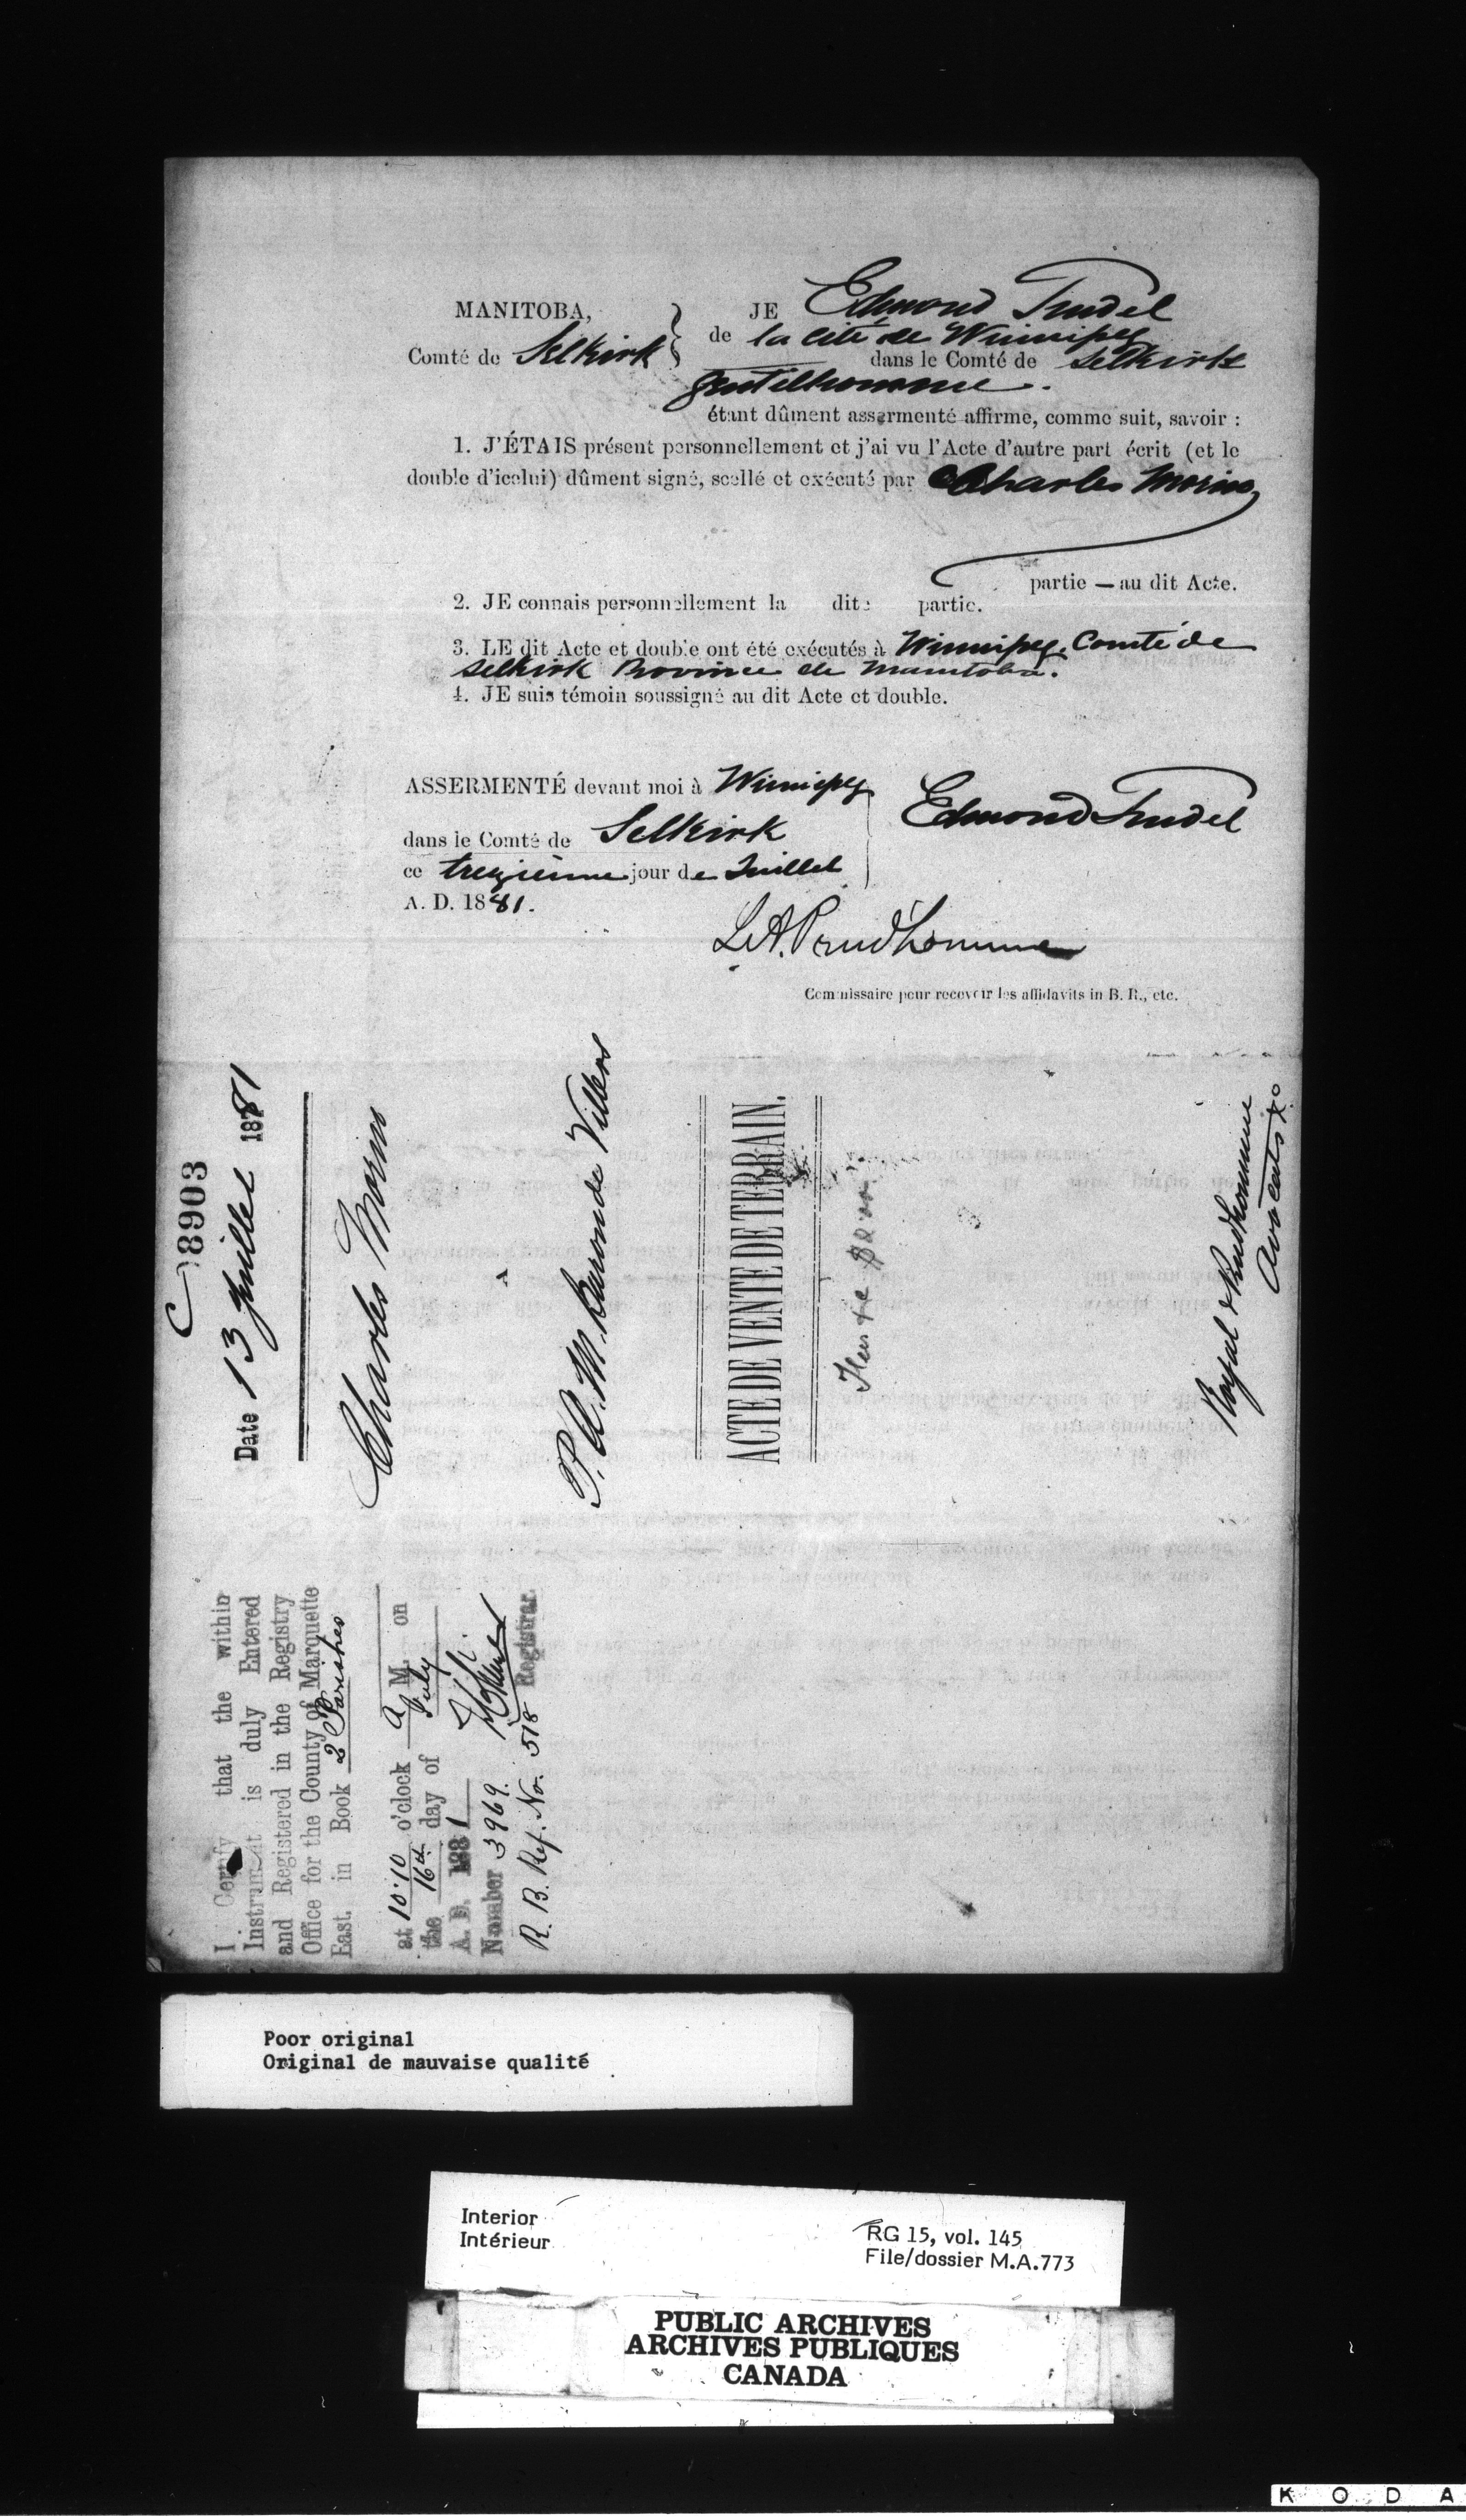 MANITOBA,
Comté de Selkirk
JE Edmond Trudel
de la cité de Winnipeg
dans le Comté de Selkirk
gentilhomme.
étant dûment assermenté affirme, comme suit, savoir :
1. J'ÉTAIS présent personnellement et j'ai vu l'Acte d'autre part écrit (et le
double d'icelui) dûment signé, scellé et exécuté par Charles Morin
partie — au dit Acte.
2. JE connais personnellement la dite partie.
3. LE dit Acte et double ont été exécutés à Winnipeg, Comté de
Selkirk Province de Manitoba.
4. JE suis témoin soussigné au dit Acte et double.
ASSERMENTÉ devant moi à Winnipeg
dans le Comté de Selkirk
ce treizième jour de Juillet
A. D. 1881.
Edmond Trudel
L.A. Prud'homme
Commissaire pour recevoir les affidavits in B. R., etc.
8903
Date 13 Juillet 1881
Charles Morin
A
P. A. M. Baron de Villers
ACTE DE VENTE DE TERRAIN.
Royal & Prudhomme
Avocats &c
I Certify that the within
Instrument is duly Entered
and Registered in the Registry
Office for the County of Marquette
East, in Book 2 Parishes
at 10.10 o'clock A M. on
the 16th day of July
A. D. 1881
Number 3969.
Registrar.
R. B. Ref. No. 518
Poor original
Original de mauvaise qualité
Interior
Intérieur
RG 15, vol. 145
File/dossier M.A.773
PUBLIC ARCHIVES
ARCHIVES PUBLIQUES
CANADA
K O D A